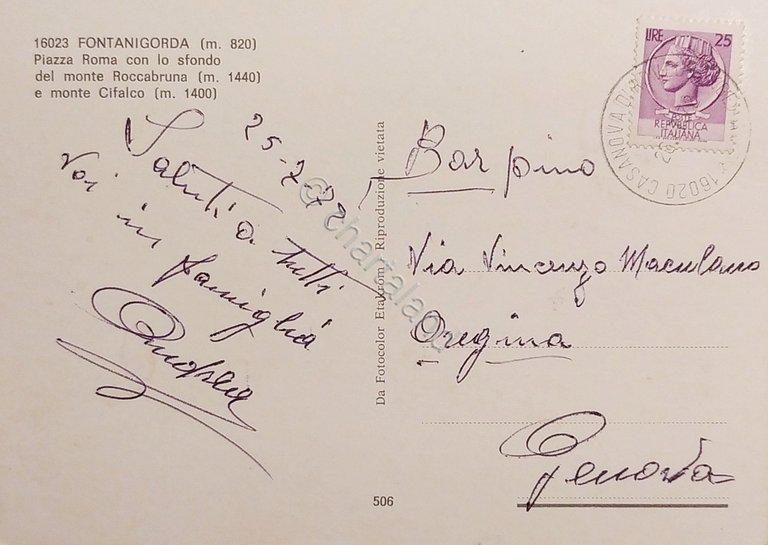 16023 FONTANIGORDA (m. 820)
Piazza Roma con lo sfondo
del monte Roccabruna (m. 1440)
e monte Cifalco (m. 1400)
25-7-72
Saluti a tutti
Voi in famiglia
Da Fotocolor Etakrom - Riproduzione vietata
506
LIRE 25
REPUBBLICA
ITALIANA
16020 CASANOVA DI
Bar pino
Via Vincenzo Maculano
Oregina
Genova
© chartaland